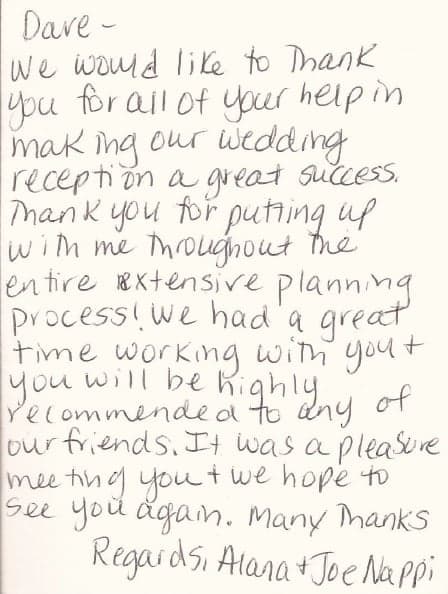 Dave -
We would like to Thank
you for all of your help in
making our wedding
reception a great success.
Thank you for putting up
with me throughout the
entire extensive planning
process! We had a great
time working with you +
you will be highly
recommended to any of
our friends. It was a pleasure
meeting you + we hope to
see you again. Many Thanks
Regards, Alana + Joe Nappi